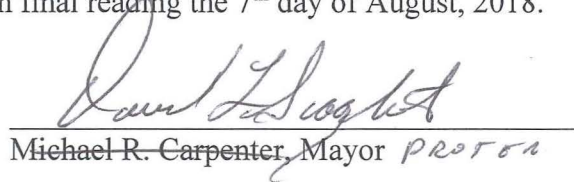 n final reading the 7th day of August, 2018.
Michael R. Carpenter, Mayor PROTEM